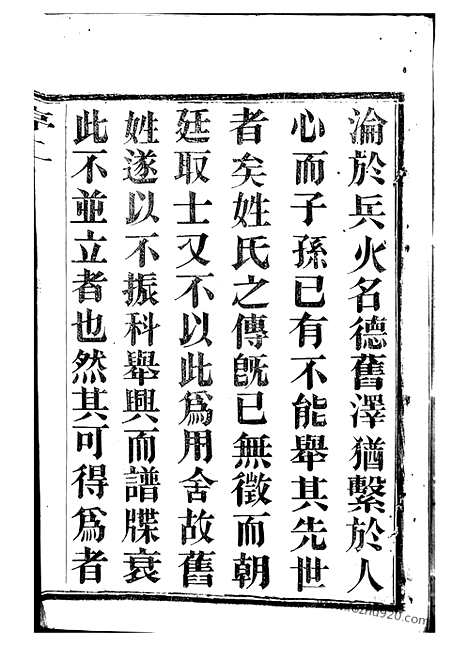 淪於兵火名德舊澤猶繫於人
心而子孫已有不能舉其先世
者矣姓氏之傳旣已無徵而朝
廷取士又不以此爲用舍故舊
姓遂以不振科舉興而譜牒衰
此不並立者也然其可得爲者